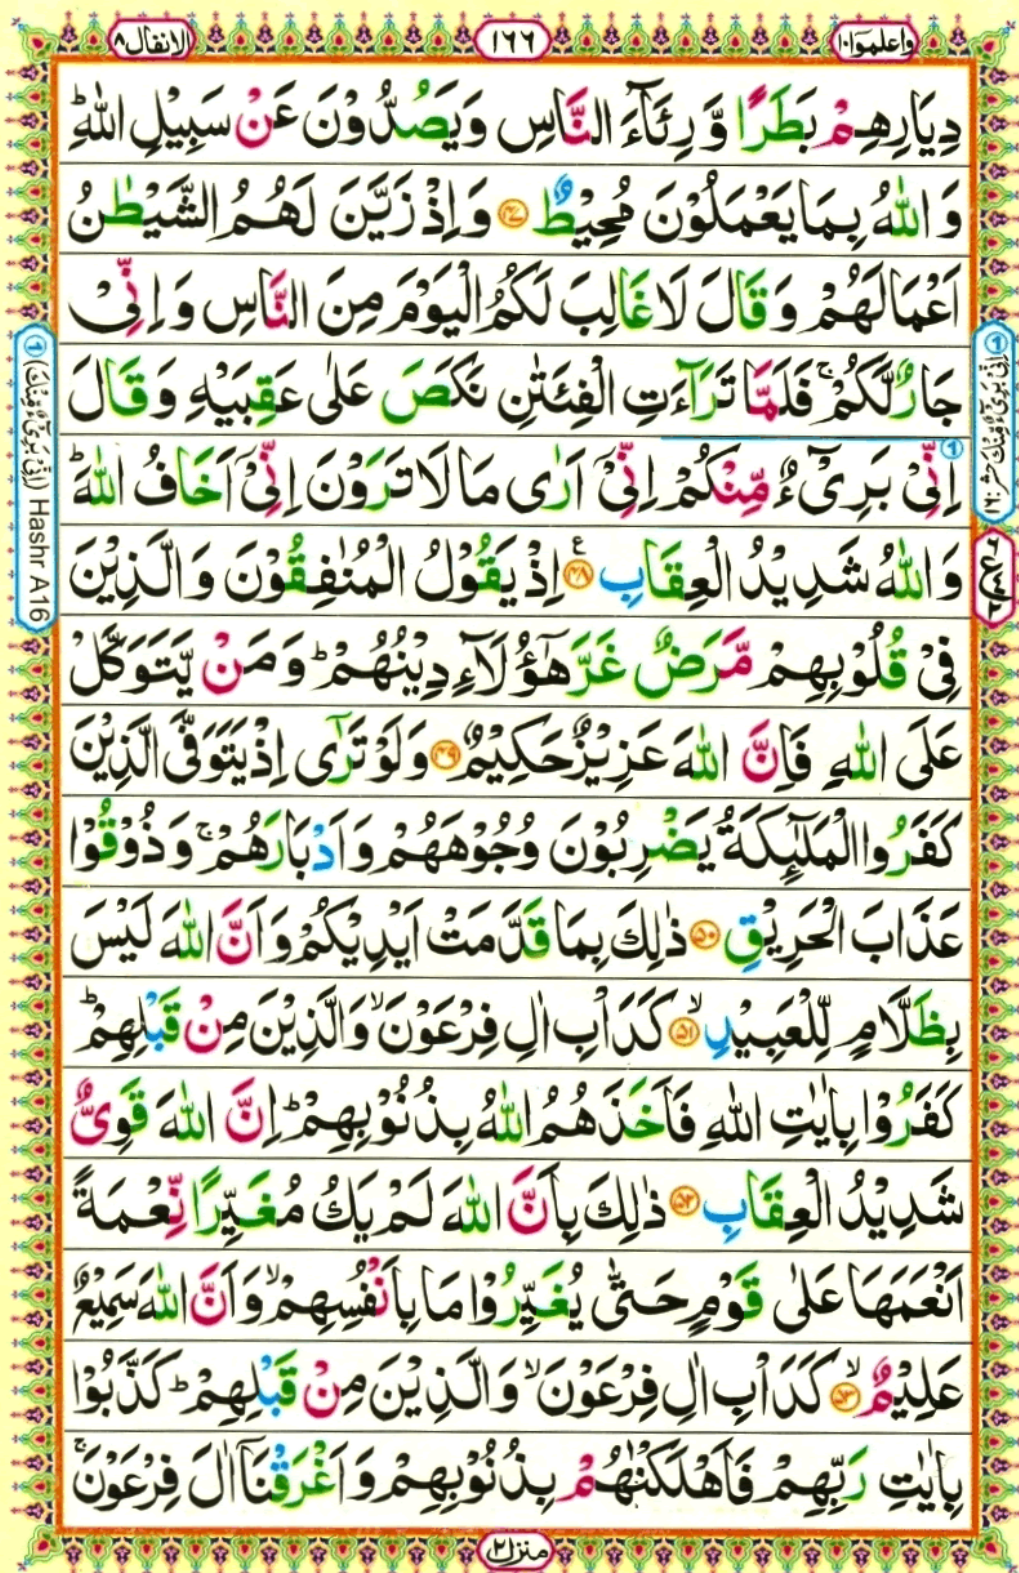 واعلموا ١٠
١٦٦
الانفال ٨
دِيَارِهِمْ بَطَرًا وَّ رِئَآءَ النَّاسِ وَيَصُدُّوْنَ عَنْ سَبِيْلِ اللّٰهِ ؕ
وَ اللّٰهُ بِمَا يَعْمَلُوْنَ مُحِيْطٌ ﴿۴۷﴾ وَ اِذْ زَيَّنَ لَهُمُ الشَّيْطٰنُ
اَعْمَالَهُمْ وَ قَالَ لَا غَالِبَ لَكُمُ الْيَوْمَ مِنَ النَّاسِ وَ اِنِّيْ
جَارٌ لَّكُمْ ۚ فَلَمَّا تَرَآءَتِ الْفِئَتٰنِ نَكَصَ عَلٰى عَقِبَيْهِ وَ قَالَ
اِنِّيْ بَرِيْٓءٌ مِّنْكُمْ اِنِّيْۤ اَرٰى مَا لَا تَرَوْنَ اِنِّيْۤ اَخَافُ اللّٰهَ ؕ
وَ اللّٰهُ شَدِيْدُ الْعِقَابِ ﴿۴۸﴾ ع اِذْ يَقُوْلُ الْمُنٰفِقُوْنَ وَ الَّذِيْنَ
فِيْ قُلُوْبِهِمْ مَّرَضٌ غَرَّ هٰۤؤُلَآءِ دِيْنُهُمْ ؕ وَ مَنْ يَّتَوَكَّلْ
عَلَى اللّٰهِ فَاِنَّ اللّٰهَ عَزِيْزٌ حَكِيْمٌ ﴿۴۹﴾ وَ لَوْ تَرٰۤى اِذْ يَتَوَفَّى الَّذِيْنَ
كَفَرُوا الْمَلٰٓئِكَةُ يَضْرِبُوْنَ وُجُوْهَهُمْ وَ اَدْبَارَهُمْ ۚ وَ ذُوْقُوْا
عَذَابَ الْحَرِيْقِ ﴿۵۰﴾ ذٰلِكَ بِمَا قَدَّمَتْ اَيْدِيْكُمْ وَ اَنَّ اللّٰهَ لَيْسَ
بِظَلَّامٍ لِّلْعَبِيْدِ ۙ﴿۵۱﴾ كَدَاْبِ اٰلِ فِرْعَوْنَ ۙ وَ الَّذِيْنَ مِنْ قَبْلِهِمْ ؕ
كَفَرُوْا بِاٰيٰتِ اللّٰهِ فَاَخَذَهُمُ اللّٰهُ بِذُنُوْبِهِمْ ؕ اِنَّ اللّٰهَ قَوِيٌّ
شَدِيْدُ الْعِقَابِ ﴿۵۲﴾ ذٰلِكَ بِاَنَّ اللّٰهَ لَمْ يَكُ مُغَيِّرًا نِّعْمَةً
اَنْعَمَهَا عَلٰى قَوْمٍ حَتّٰى يُغَيِّرُوْا مَا بِاَنْفُسِهِمْ ۙ وَ اَنَّ اللّٰهَ سَمِيْعٌ
عَلِيْمٌ ۙ﴿۵۳﴾ كَدَاْبِ اٰلِ فِرْعَوْنَ ۙ وَ الَّذِيْنَ مِنْ قَبْلِهِمْ ؕ كَذَّبُوْا
بِاٰيٰتِ رَبِّهِمْ فَاَهْلَكْنٰهُمْ بِذُنُوْبِهِمْ وَ اَغْرَقْنَاۤ اٰلَ فِرْعَوْنَ ۚ
منزل ٢
① اِنِّيْ بَرِيْٓءٌ مِّنْكَ حشر: ١٦
① (اِنِّيْ بَرِيْٓءٌ مِّنْكَ) Hashr A16